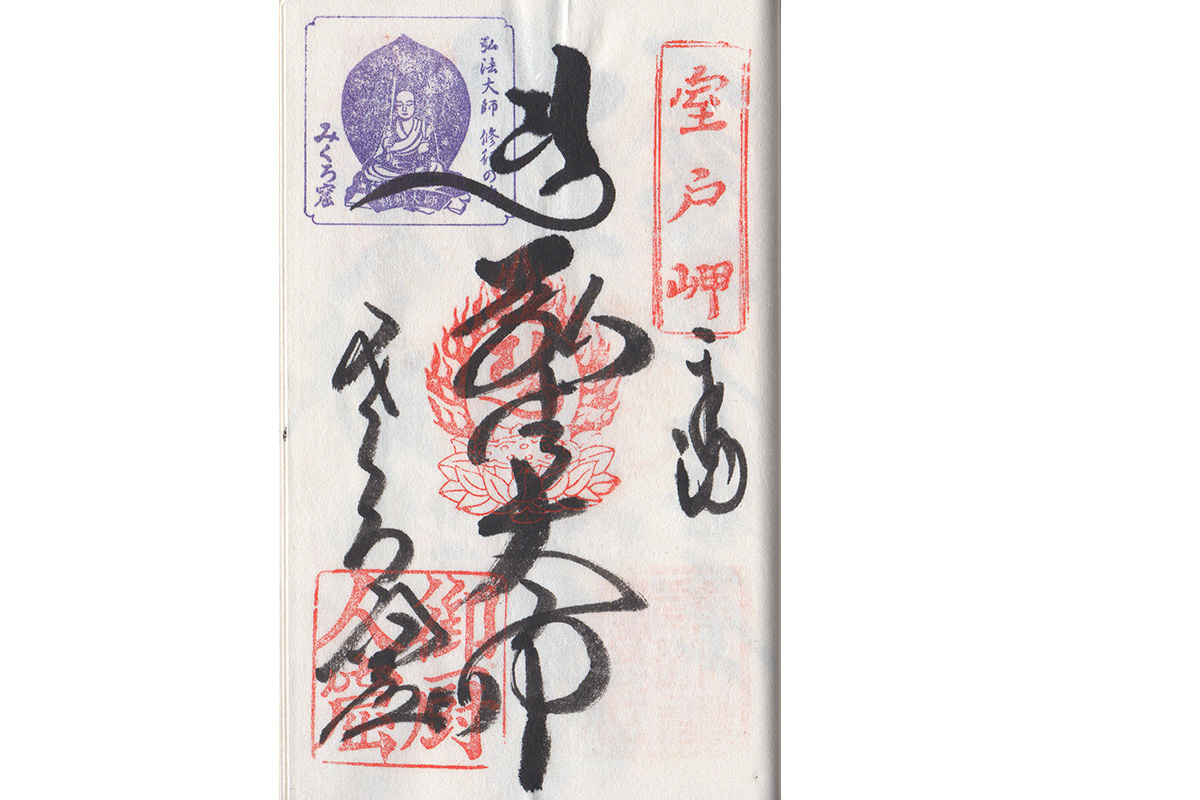 室戸岬
大師
みくろ窟
弘法大師 修行の
みくろ窟
御厨
人窟